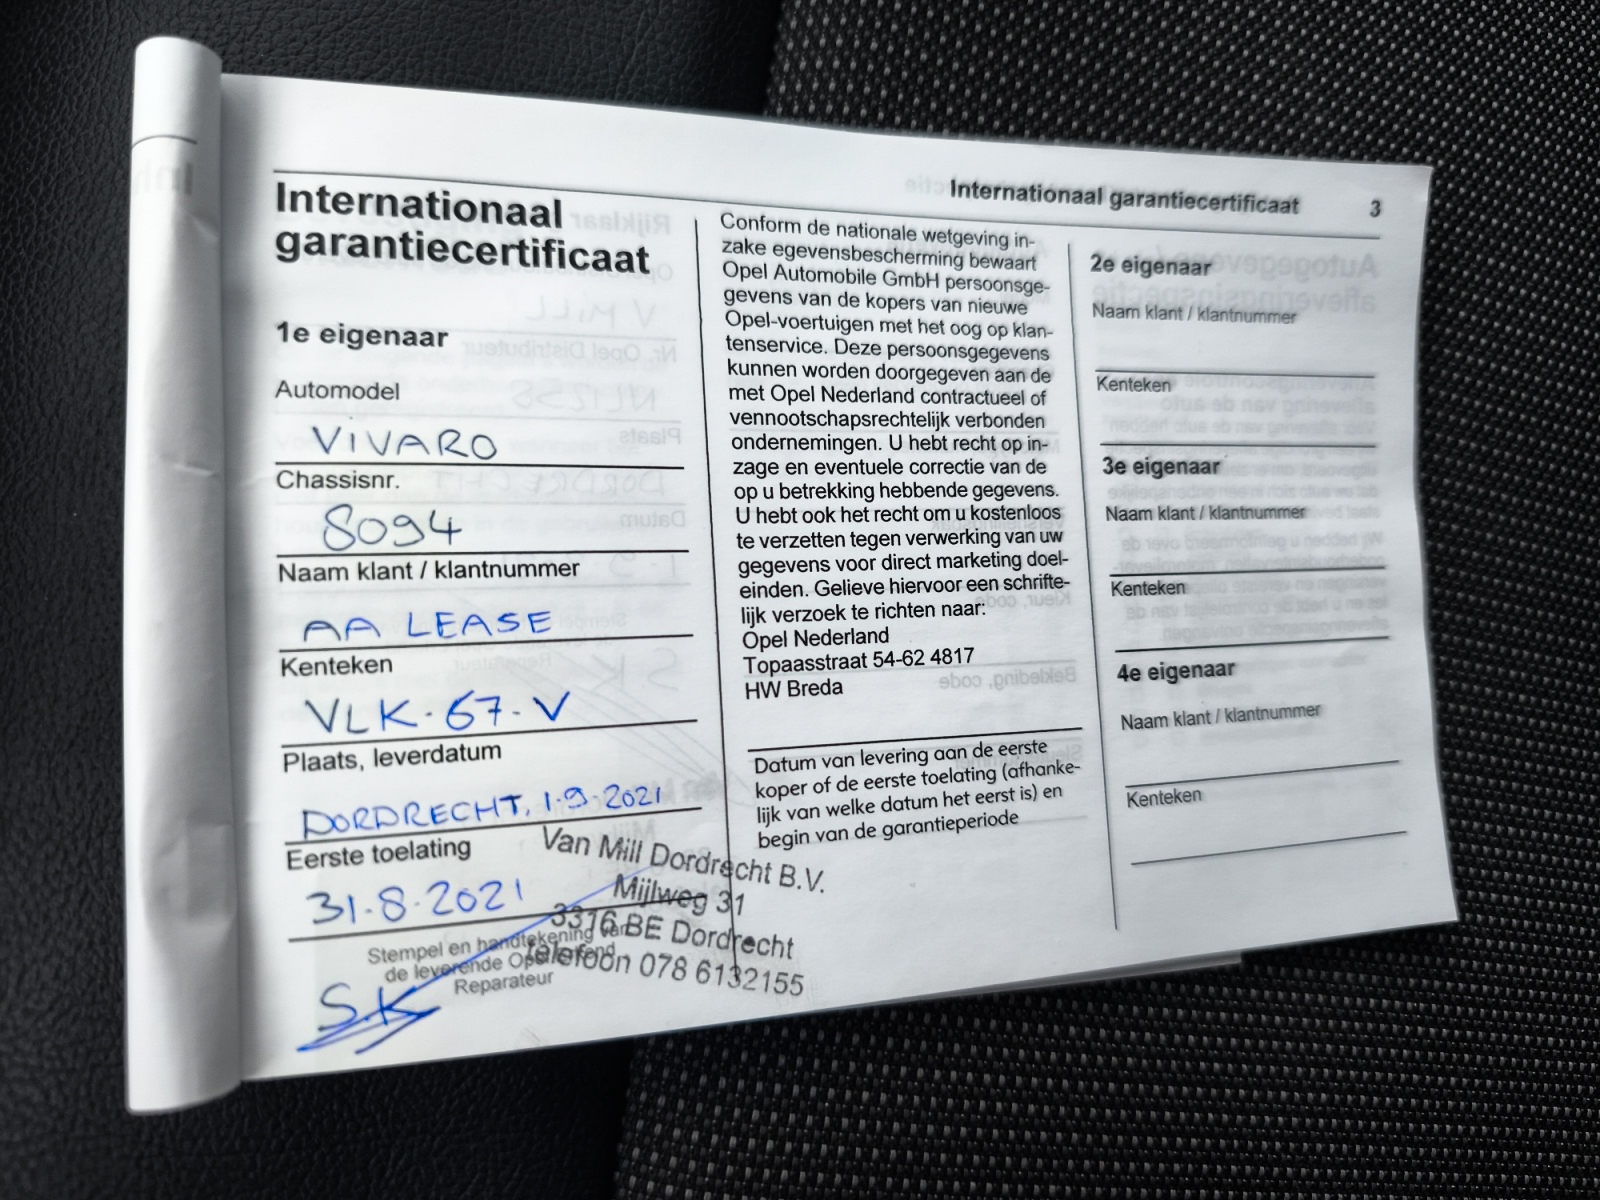 Internationaal garantiecertificaat 3
Internationaal
garantiecertificaat
1e eigenaar
Automodel
VIVARO
Chassisnr.
8094
Naam klant / klantnummer
AA LEASE
Kenteken
VLK-67-V
Plaats, leverdatum
DORDRECHT, 1-9-2021
Eerste toelating
31-8-2021
Stempel en handtekening van
de leverende Opel
Reparateur
S.K
Van Mill Dordrecht B.V.
Mijlweg 31
3316 BE Dordrecht
telefoon 078 6132155
Conform de nationale wetgeving in-
zake egevensbescherming bewaart
Opel Automobile GmbH persoonsge-
gevens van de kopers van nieuwe
Opel-voertuigen met het oog op klan-
tenservice. Deze persoonsgegevens
kunnen worden doorgegeven aan de
met Opel Nederland contractueel of
vennootschapsrechtelijk verbonden
ondernemingen. U hebt recht op in-
zage en eventuele correctie van de
op u betrekking hebbende gegevens.
U hebt ook het recht om u kostenloos
te verzetten tegen verwerking van uw
gegevens voor direct marketing doel-
einden. Gelieve hiervoor een schrifte-
lijk verzoek te richten naar:
Opel Nederland
Topaasstraat 54-62 4817
HW Breda
Datum van levering aan de eerste
koper of de eerste toelating (afhanke-
lijk van welke datum het eerst is) en
begin van de garantieperiode
2e eigenaar
Naam klant / klantnummer
Kenteken
3e eigenaar
Naam klant / klantnummer
Kenteken
4e eigenaar
Naam klant / klantnummer
Kenteken